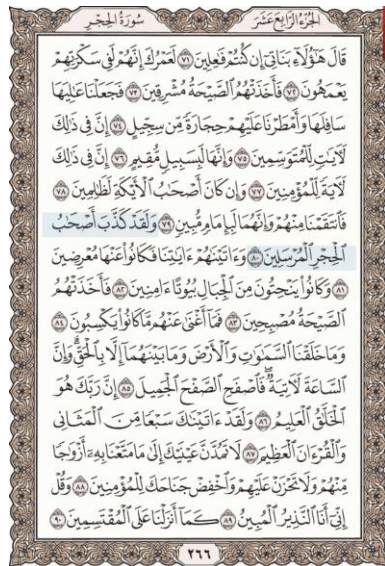 سُورَةُ الحِجْرِ الجُزْءُ الرَّابِعَ عَشَرَ
قَالَ هَٰٓؤُلَآءِ بَنَاتِىٓ إِن كُنتُمْ فَٰعِلِينَ ٧١ لَعَمْرُكَ إِنَّهُمْ لَفِى سَكْرَتِهِمْ
يَعْمَهُونَ ٧٢ فَأَخَذَتْهُمُ ٱلصَّيْحَةُ مُشْرِقِينَ ٧٣ فَجَعَلْنَا عَٰلِيَهَا
سَافِلَهَا وَأَمْطَرْنَا عَلَيْهِمْ حِجَارَةً مِّن سِجِّيلٍ ٧٤ إِنَّ فِى ذَٰلِكَ
لَءَايَٰتٍ لِّلْمُتَوَسِّمِينَ ٧٥ وَإِنَّهَا لَبِسَبِيلٍ مُّقِيمٍ ٧٦ إِنَّ فِى ذَٰلِكَ
لَءَايَةً لِّلْمُؤْمِنِينَ ٧٧ وَإِن كَانَ أَصْحَٰبُ ٱلْأَيْكَةِ لَظَٰلِمِينَ ٧٨
فَٱنتَقَمْنَا مِنْهُمْ وَإِنَّهُمَا لَبِإِمَامٍ مُّبِينٍ ٧٩ وَلَقَدْ كَذَّبَ أَصْحَٰبُ
ٱلْحِجْرِ ٱلْمُرْسَلِينَ ٨٠ وَءَاتَيْنَٰهُمْ ءَايَٰتِنَا فَكَانُوا۟ عَنْهَا مُعْرِضِينَ
٨١ وَكَانُوا۟ يَنْحِتُونَ مِنَ ٱلْجِبَالِ بُيُوتًا ءَامِنِينَ ٨٢ فَأَخَذَتْهُمُ
ٱلصَّيْحَةُ مُصْبِحِينَ ٨٣ فَمَآ أَغْنَىٰ عَنْهُم مَّا كَانُوا۟ يَكْسِبُونَ ٨٤
وَمَا خَلَقْنَا ٱلسَّمَٰوَٰتِ وَٱلْأَرْضَ وَمَا بَيْنَهُمَآ إِلَّا بِٱلْحَقِّ ۗ وَإِنَّ
ٱلسَّاعَةَ لَءَاتِيَةٌ ۖ فَٱصْفَحِ ٱلصَّفْحَ ٱلْجَمِيلَ ٨٥ إِنَّ رَبَّكَ هُوَ
ٱلْخَلَّٰقُ ٱلْعَلِيمُ ٨٦ وَلَقَدْ ءَاتَيْنَٰكَ سَبْعًا مِّنَ ٱلْمَثَانِى
وَٱلْقُرْءَانَ ٱلْعَظِيمَ ٨٧ لَا تَمُدَّنَّ عَيْنَيْكَ إِلَىٰ مَا مَتَّعْنَا بِهِۦٓ أَزْوَٰجًا
مِّنْهُمْ وَلَا تَحْزَنْ عَلَيْهِمْ وَٱخْفِضْ جَنَاحَكَ لِلْمُؤْمِنِينَ ٨٨ وَقُلْ
إِنِّىٓ أَنَا ٱلنَّذِيرُ ٱلْمُبِينُ ٨٩ كَمَآ أَنزَلْنَا عَلَى ٱلْمُقْتَسِمِينَ ٩٠
٢٦٦